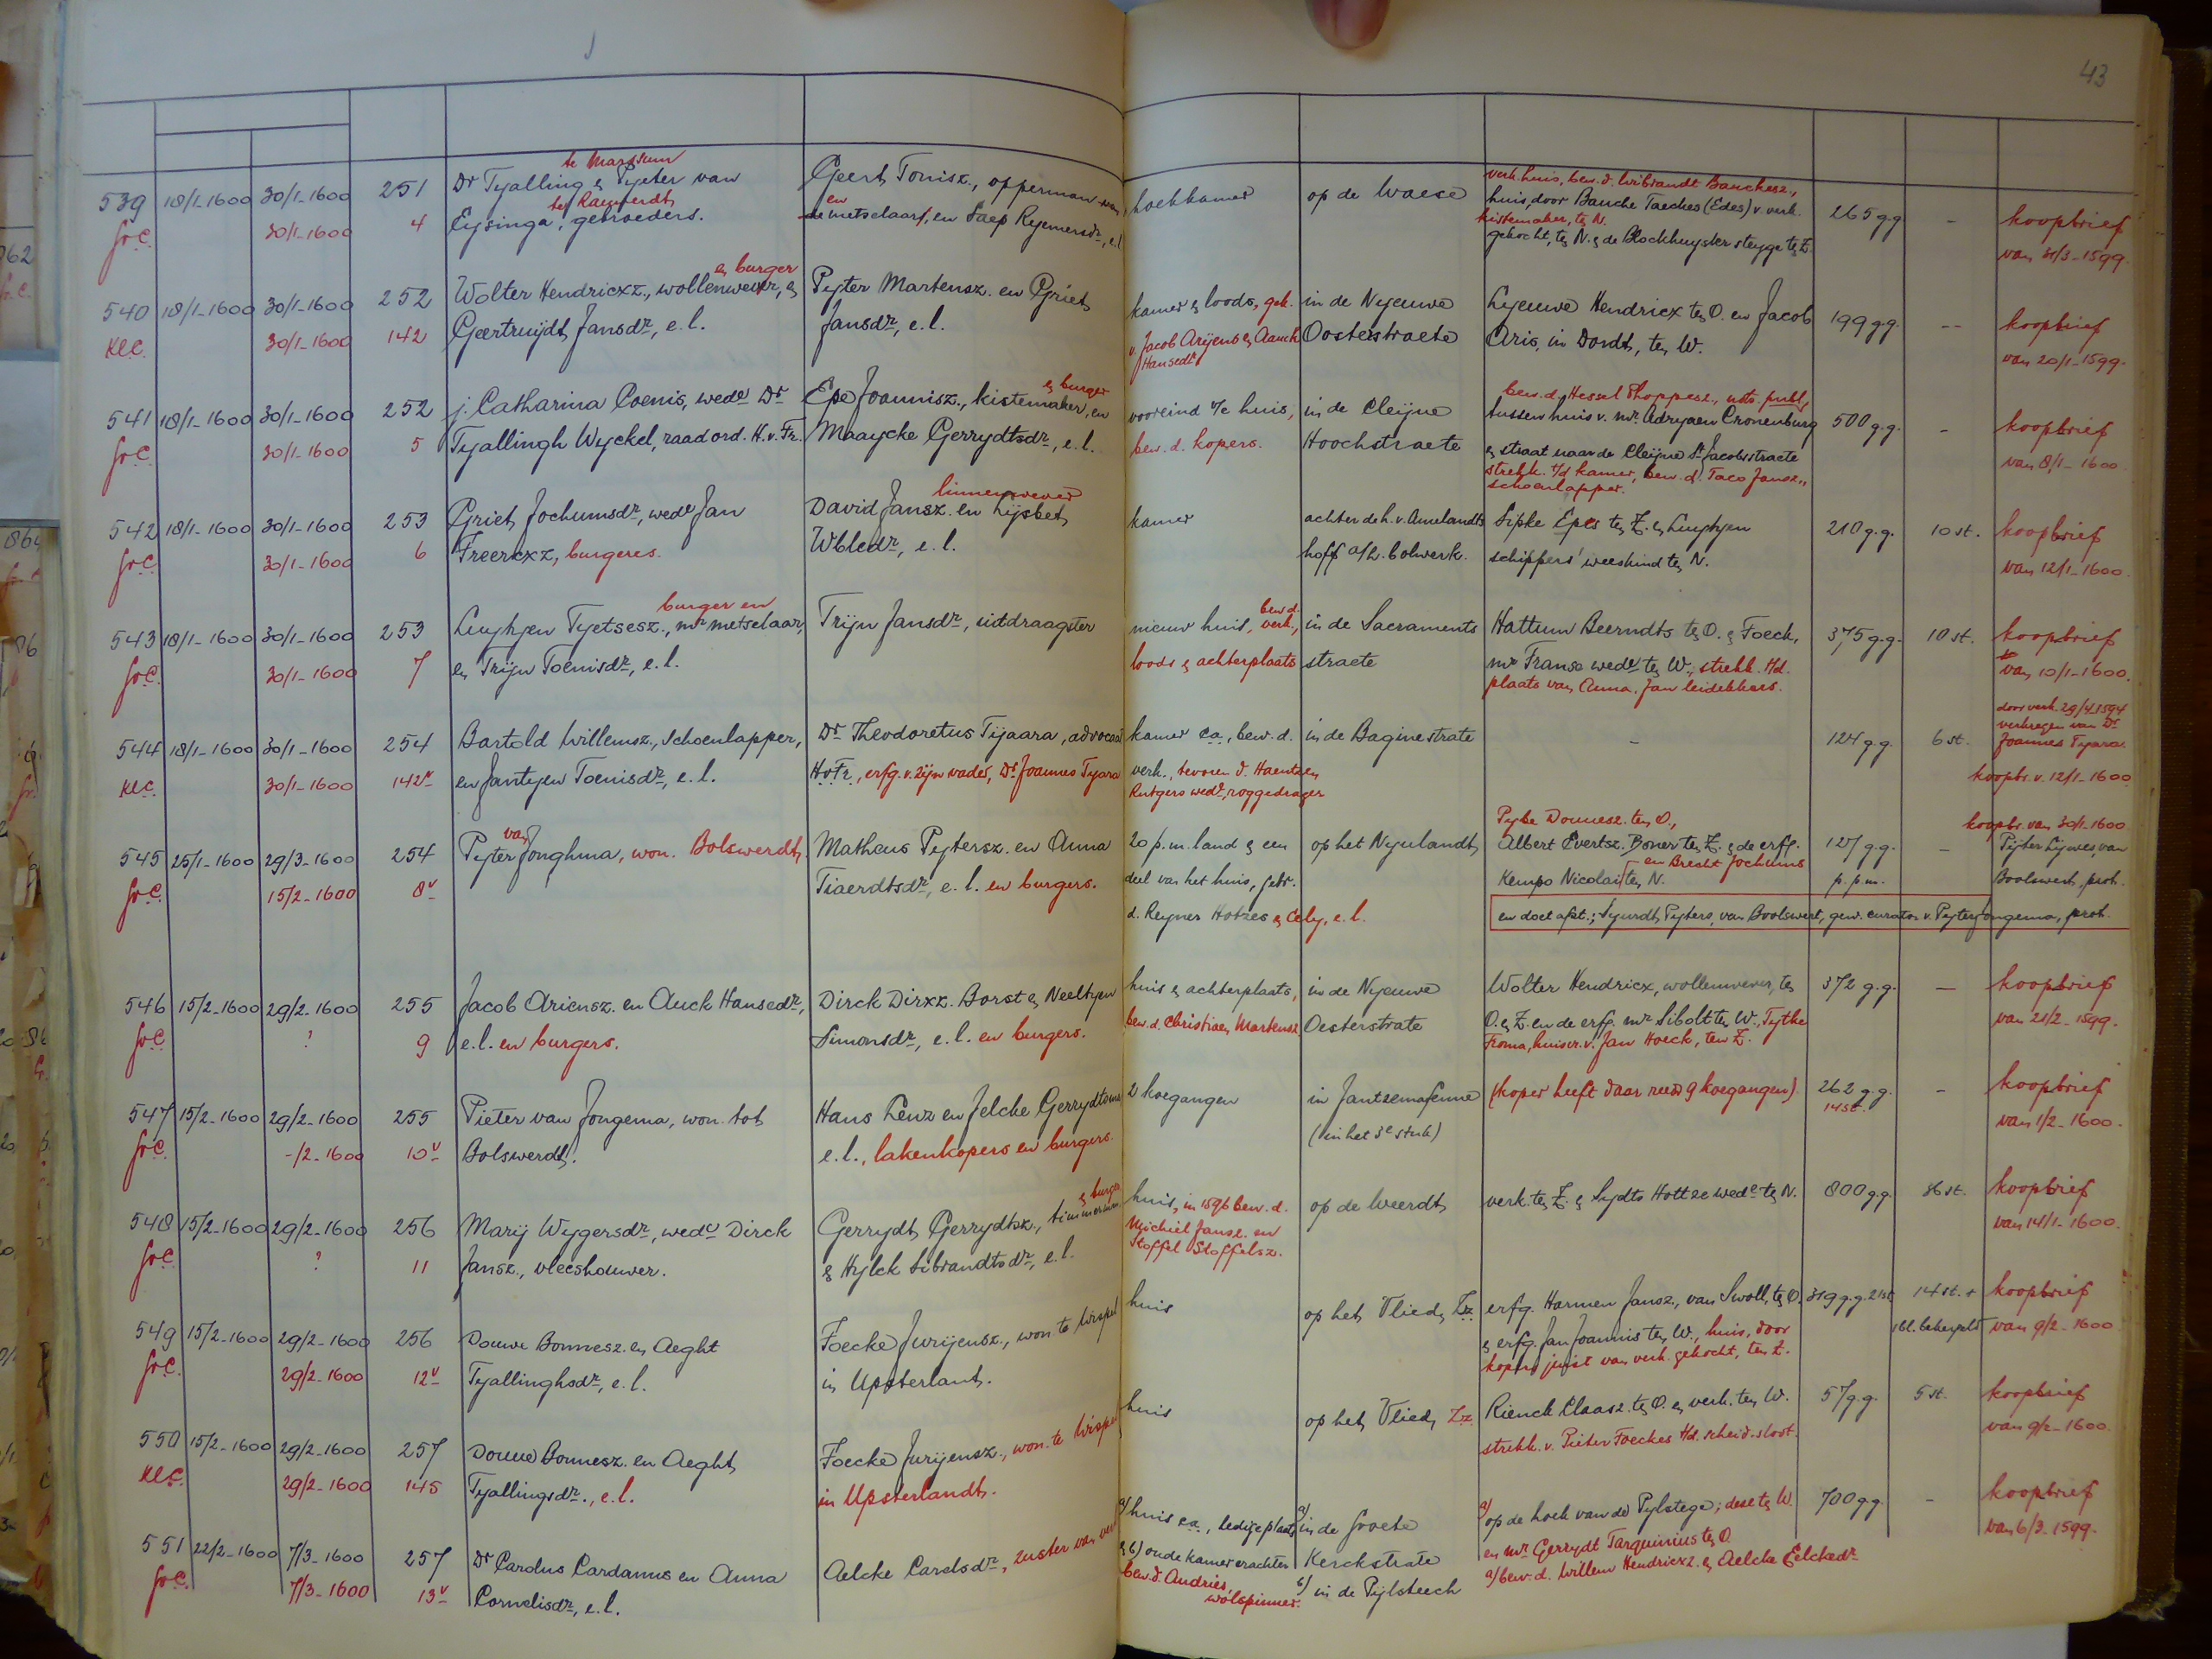 43
539 18/1-1600 30/1-1600 251 Dr Tyalling & Pyeter van Geert Tonisz., opperman van hoekkamer op de Waese huis, door Bauche Taeckes (Edes) v. verk. 265 g.g. - koopbrief
te Marssum
te Raeuwerdt
verk. huis, bew. d. Wibrandt Bauckesz.,
kistemaker, ten N.
Gr.C. 30/1-1600 4 Eysinga, gebroeders. de metselaars, en Saep Reyemersdr, e.l. gekocht, ten N. & de Blockhuyster steyge ten Z. van 31/3-1599.
en
540 18/1-1600 30/1-1600 252 Wolter Hendricxz., wollenwever, & Pyter Martensz. en Griet kamer & loods, gek. in de Nyeuwe Lyeuwe Hendricx ten O. en Jacob 199 g.g. -- koopbrief
en burger
Kl.C. 30/1-1600 142 Geertruijdt Jansdr, e.l. Jansdr, e.l. v. Jacob Arijens & Aauck Oosterstraete Aris, in Dordt, ten W. van 20/1-1599.
Hansedr
541 18/1-1600 30/1-1600 252 j. Catharina Coenis, wede Dr Epe Joannisz., kistemaker, en vooreind v/e huis, in de Cleijne tussen huis v. mr Adryaen Cronenburg 500 g.g. - koopbrief
& burger
bew. d. Hessel Phoppesz., nots. publ.,
Gr.C. 30/1-1600 5 Tyallingh Wyckel, raad ord. H.v.Fr. Maaycke Gerrydtsdr, e.l. bew. d. kopers. Hoochstraete & straat naar de Cleijne St Jacobsstraete van 8/1-1600
strekk. t/d kamer, bew. d. Taco Jansz.,
schoenlapper.
542 18/1-1600 30/1-1600 253 Griet Jochumsdr, wede Jan David Jansz. en Lijsbet kamer achter de h. v. Amelandts Sipke Epes ten Z. & Luytyen 210 g.g. 10 st. koopbrief
linnenwever
Gr.C. 30/1-1600 6 Freerickxz, burgeres. Wbledr, e.l. hoff a/h. bolwerk. schippers' weeskind ten N. van 12/1-1600.
543 18/1-1600 30/1-1600 253 Luytyen Tyetsesz., mr metselaar, Trijn Jansdr, uitdraagster nieuw huis, verk., in de Sacraments Hattum Beerndts ten O. & Foeck, 375 g.g. 10 st. koopbrief
burger en
bew. d.
Gr.C. 30/1-1600 7 en Trijn Toenisdr, e.l. loods & achterplaats straete mr Franse wede ten W., strekk. t/d. van 10/1-1600.
plaats van Anna Jan leidekkers.
door verk. 29/4 1594
verkregen van Dr
544 18/1-1600 30/1-1600 254 Bartold Willemsz., schoenlapper, Dr Theodoretus Tijaara, advocaat kamer c.a., bew. d. in de Baginestrate - 124 g.g. 6 st. Joannes Tyara.
Kl.C. 30/1-1600 142v en Jantyen Toenisdr, e.l. H.v.Fr., erfg. v. zijn vader, Dr Joannes Tyara verk., tevoren d. Haentzen koopbr. v. 12/1-1600
Rutgers wede, roggedrager
Pybe Douwesz. ten O., koopbr. van 30/1-1600
545 25/1-1600 29/3-1600 254 Pyter Jonghma, won. Bolswerdt. Matheus Pytersz. en Anna 20 p.m. land & een op het Nyulandt Albert Evertsz. Boner ten Z. & de erfg. 127 g.g. - Pijter Lijwes, van
van
en Brecht Jochums
Gr.C. 15/2-1600 8v Tiaerdtsdr, e.l. en burgers. deel van het huis, gebr. Kempo Nicolai ten N. p. p.m. Boolswert, prot.
d. Reyner Hotzes & Cely, e.l. en doet afst.; Syurdt Pyters, van Boolswert, gew. curator v. Pyter Jongema, prot.
546 15/2-1600 29/2-1600 255 Jacob Ariensz. en Auck Hansedr, Dirck Dirxz. Borst & Neeltyen huis & achterplaats, in de Nyeuwe Wolter Hendricx, wollenwever, ten 372 g.g. - koopbrief
Gr.C. ? 9 e.l. en burgers. Simonsdr, e.l. en burgers. bew. d. Christiaen Martensz. Oesterstrate O. & Z. en de erfg. mr Sibolt ten W., Tytke van 21/2-1599.
Froma, huisvr. v. Jan Hoeck, ten Z.
547 15/2-1600 29/2-1600 255 Pieter van Jongema, won. tot Hans Lenz en Jelcke Gerrydtsdr 2 koegangen in Jantzemafenne (koper heeft daar reeds 9 koegangen). 262 g.g. - koopbrief
14 st.
Gr.C. -/2-1600 10v Bolswerdt. e.l., lakenkopers en burgers. (in het 3e stuk) van 1/2-1600.
548 15/2-1600 29/2-1600 256 Marij Wygersdr, wede Dirck Gerrydt Gerrydtsz., timmerman huis, in 1596 bew. d. op de Weerdt verk. ten Z. & Sydts Hottze wede ten N. 800 g.g. 36 st. koopbrief
& burger
Gr.C. ? 11 Jansz., vleeshouwer. & Hylck Sibrandtsdr, e.l. Michiel Jansz. en van 14/1-1600.
Stoffel Stoffelsz.
549 15/2-1600 29/2-1600 256 Douwe Bonnesz. en Aeght Foecke Jurijensz., won. te Wispel huis op het Vliet, Zz. erfg. Harmen Jansz., van Swoll, ten O. 319 g.g. 21 st. 14 st. + koopbrief
Gr.C. 29/2-1600 12v Tyallinghsdr, e.l. in Upsterlant. & erfg. Jan Joannis ten W., huis, door van 9/2-1600
kopers juist van verk. gekocht, ten Z.
550 15/2-1600 29/2-1600 257 Douwe Bonnesz. en Aeght Foecke Jurijensz., won. te Wispel huis op het Vliet, Zz. Rienck Claasz. ten O. & verk. ten W. 57 g.g. 5 st. koopbrief
Kl.C. 29/2-1600 145 Tyallingsdr., e.l. in Upsterlandt. strekk. v. Pieter Foeckes t/d. scheid.sloot. van 9/2-1600.
551 22/2-1600 7/3-1600 257 Dr Carolus Cardamus en Anna Aelcke Carelsdr, zuster van verk. a/ huis c.a., ledige plaats a/ in de Groete a/ op de hoek van de Pylstege; dese ten W. 700 g.g. - koopbrief
Gr.C. 7/3-1600 13v Cornelisdr, e.l. & b/ oude kamer erachter Kerckstrate en mr Gerrydt Tarquinius ten O. van 6/3-1599.
bew. d. Andries, wolspinner. b/ in de Pijlsteech a/ bew. d. Willem Hendricxz. & Aelcke Eelckedr